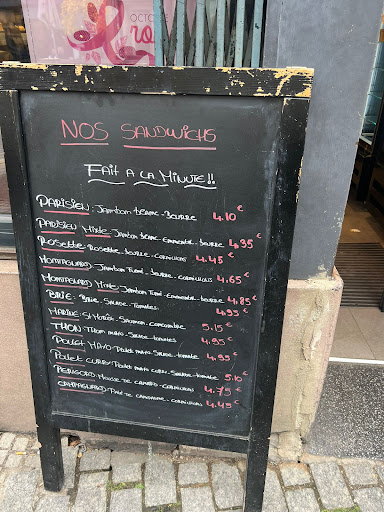 OCTO
ro
NOS SANDWICHS
FAIT A LA MINUTE!!
PARISIEN - Jambon blanc - Beurre 4.10 €
PARISIEN Mixte - Jambon blanc - Emmental - beurre 4.35 €
ROSETTE - Rosette - Beurre - cornichons 4.45 €
MONTAGNARD - Jambon Fumé - Beurre - cornichons 4.65 €
MONTAGNARD Mixte - Jambon Fumé - Emmental - beurre 4.85 €
BRIE - Brie - Salade - Tomates 4.95 €
St Môret - Saumon - concombre 5.15 €
THON - Thon mayo - Salade - tomates 4.95 €
POULET MAYO - Poulet mayo - Salade - tomate 4.95 €
POULET CURRY - Poulet mayo curry - Salade - tomate 5.10 €
PERIGORD - Mousse de canard - cornichons 4.75 €
CAMPAGNARD - Paté de campagne - cornichons 4.45 €